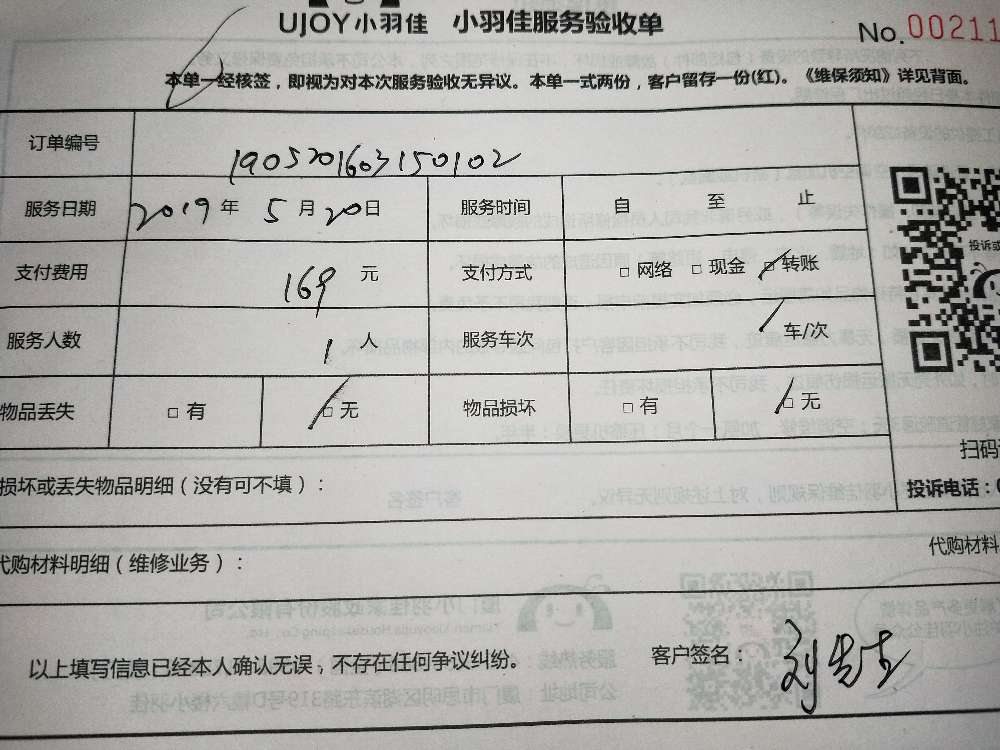 UJOY小羽佳 小羽佳服务验收单
No. 00211
本单一经核签，即视为对本次服务验收无异议。本单一式两份，客户留存一份(红)。《维保须知》详见背面。
订单编号 1905201603150102
服务日期 2019 年 5 月 20 日 服务时间 自 至 止
支付费用 169 元 支付方式 □ 网络 □ 现金 □ 转账
服务人数 1 人 服务车次 / 车/次
物品丢失 □ 有 □ 无 物品损坏 □ 有 □ 无
投诉或
扫码
损坏或丢失物品明细（没有可不填）：
投诉电话：0
代购材料明细（维修业务）：
代购材料
以上填写信息已经本人确认无误，不存在任何争议纠纷。
客户签名： 刘先生